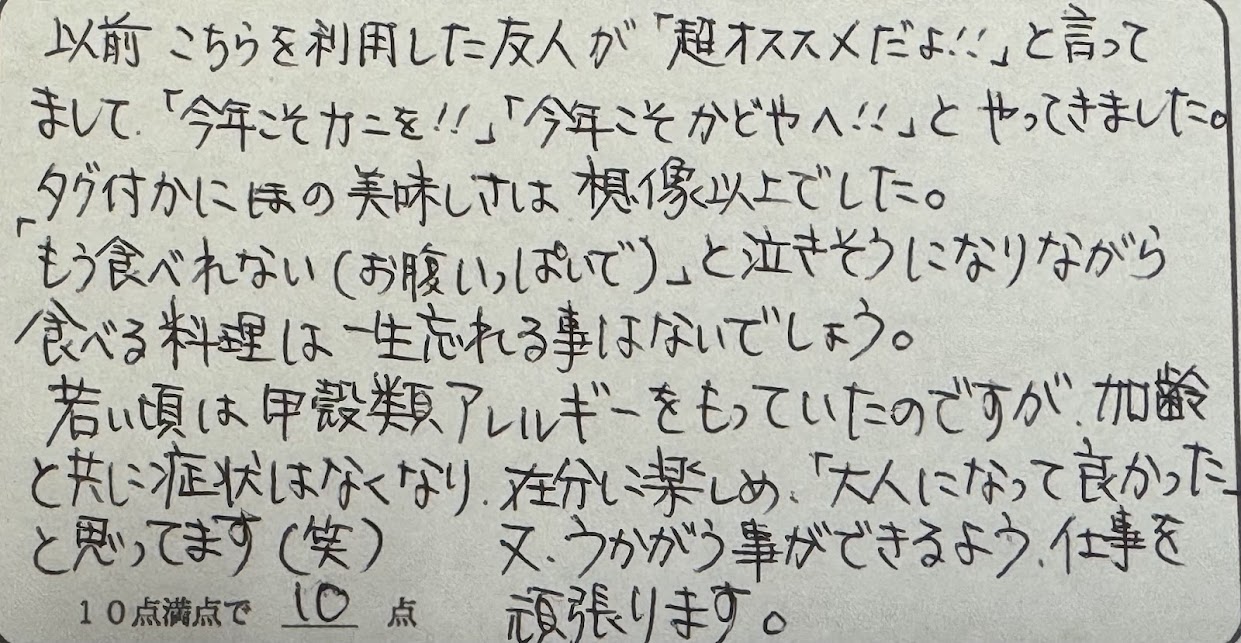 以前こちらを利用した友人が「超オススメだよ!!」と言って
まして、「今年こそカニを!!」「今年こそかどやへ!!」とやってきました。
タグ付かにほの美味しさは想像以上でした。
「もう食べれない(お腹いっぱいで)」と泣きそうになりながら
食べる料理は一生忘れる事はないでしょう。
若い頃は甲殻類アレルギーをもっていたのですが、加齢
と共に症状はなくなり、在分に楽しめ、「大人になって良かった」
と思ってます(笑) 又、うかがう事ができるよう、仕事を
頑張ります。
10点満点で 10 点